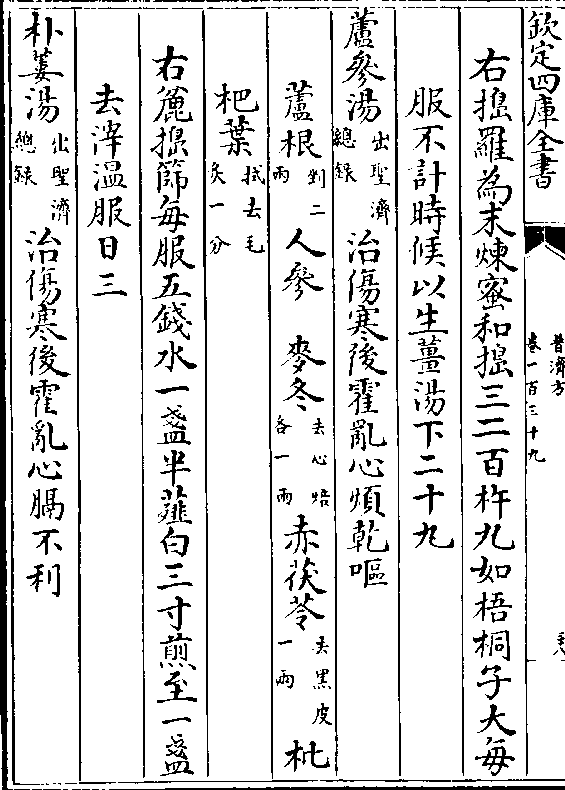 欽定四庫全書
普濟方
卷一百三十九
右搗羅為末煉蜜和搗三二百杵丸如梧桐子大每
服不計時候以生薑湯下二十丸
蘆參湯出聖濟總錄治傷寒後霍亂心煩乾嘔
蘆根剉二兩人參麥冬去心焙各一兩赤茯苓去黑皮一兩枇
杷葉拭去毛炙一分
右麄搗篩每服五錢水一盞半薤白三寸煎至一盞
去滓溫服日三
朴蔞湯出聖濟總錄治傷寒後霍亂心膈不利